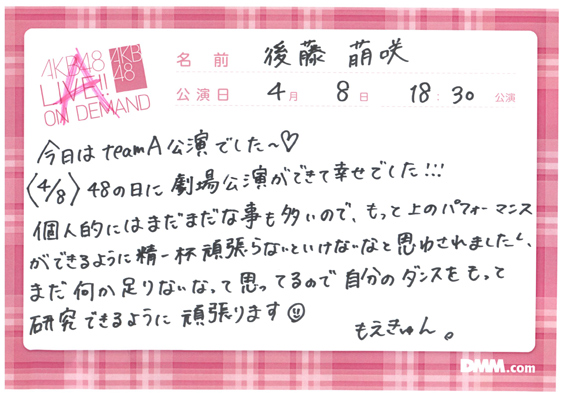 AKB48
LIVE!!
ON DEMAND
AKB
48
A
名前 後藤 萌咲
公演日 4月 8日 18:30 公演
今日は teamA 公演でした〜♡
〈4/8〉48の日に劇場公演ができて幸せでした!!!
個人的にはまだまだな事も多いので、もっと上のパフォーマンス
ができるように精一杯頑張らないといけないなと思わされましたし、
まだ何か足りないなって思ってるので自分のダンスをもって
研究できるように頑張ります☺
もえきゅん。
DMM.com